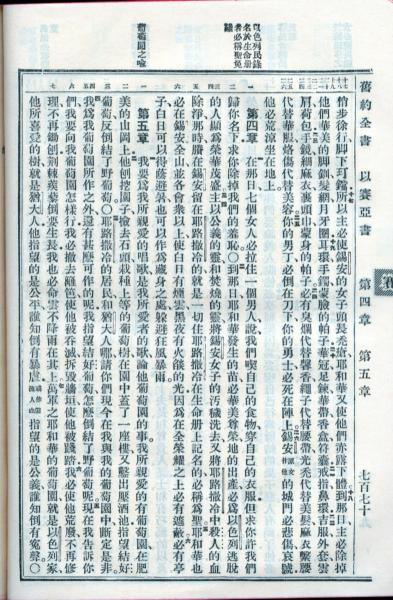 舊約全書 以賽亞書 第四章 第五章 七百七十
名於生命册
者必稱聖免
葡萄園之喻
俏步徐行脚下玎鐺所以主必使錫安的女子頭長禿瘡耶和華又使他們赤露下體到那日主必除掉
他們華美的脚釧髮網月牙圈耳環手鐲蒙臉的帕子華冠足鍊華帶香盒符囊戒指鼻環吉服外套雲
肩荷包手鏡細麻衣裹頭巾蒙身的帕子必有臭爛代替馨香繩子代替腰帶光禿代替美髮麻衣繫腰
代替華服烙傷代替美容你的男丁必倒在刀下你的勇士必死在陣上錫安的城門必悲傷哀號
他必荒涼坐在地上
第四章 在那日七個女人必拉住一個男人說我們喫自己的食物穿自己的衣服但求你許我們
歸你名下求你除掉我們的羞恥○到那日耶和華發生的苗必華美尊榮地的出產必為以色列逃脫
的人顯為榮華茂盛主以公義的靈和焚燒的靈將錫安女子的污穢洗去又將耶路撒冷中殺人的血
除淨那時賸在錫安留在耶路撒冷的就是一切住耶路撒冷在生命册上記名的必稱為聖耶和華也
必在錫安全山並各會衆以上使白日有烟雲黑夜有火燄的光因為在全榮耀之上必有遮蔽必有亭
子白日可以得蔭避暑也可以作為藏身之處躲避狂風暴雨
第五章 我要為我所親愛的唱歌是我所愛者的歌論他葡萄園的事我所親愛的有葡萄園在肥
美的山岡上他刨挖園子撿去石頭栽種上等的葡萄樹在園中蓋了一座樓又鑿出壓酒池指望結好
葡萄反倒結了野葡萄○耶路撒冷的居民和猶大人哪請你們現今在我與我的葡萄園中斷定是非
我為我葡萄園所作之外還有甚麼可作的呢我指望結好葡萄怎麼倒結了野葡萄呢現在我告訴你
們我要向我葡萄園怎樣行我必撤去籬笆使他被吞滅拆毀牆垣使他被踐踏我必使他荒廢不再修
理不再鋤刨荊棘蒺藜倒要生長我也必命雲不降雨在其上萬軍之耶和華的葡萄園就是以色列家
他所喜愛的樹就是猶大人他指望的是公平誰知倒有暴虐指望的是公義誰知倒有冤聲○